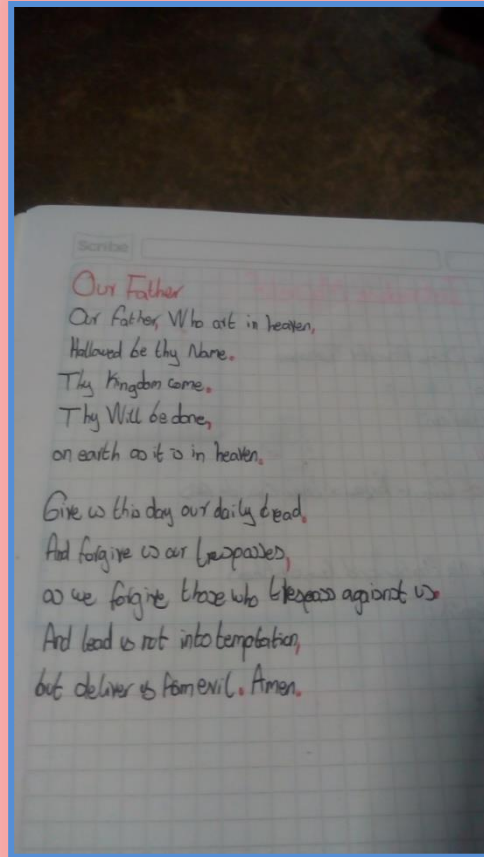 Scribe
Our Father
Our father, Who art in heaven,
Hallowed be thy Name.
Thy Kingdom come.
Thy Will be done,
on earth as it is in heaven.
Give us this day our daily bread.
And forgive us our trespasses,
as we forgive those who trespass against us.
And lead us not into temptation,
but deliver us from evil. Amen.